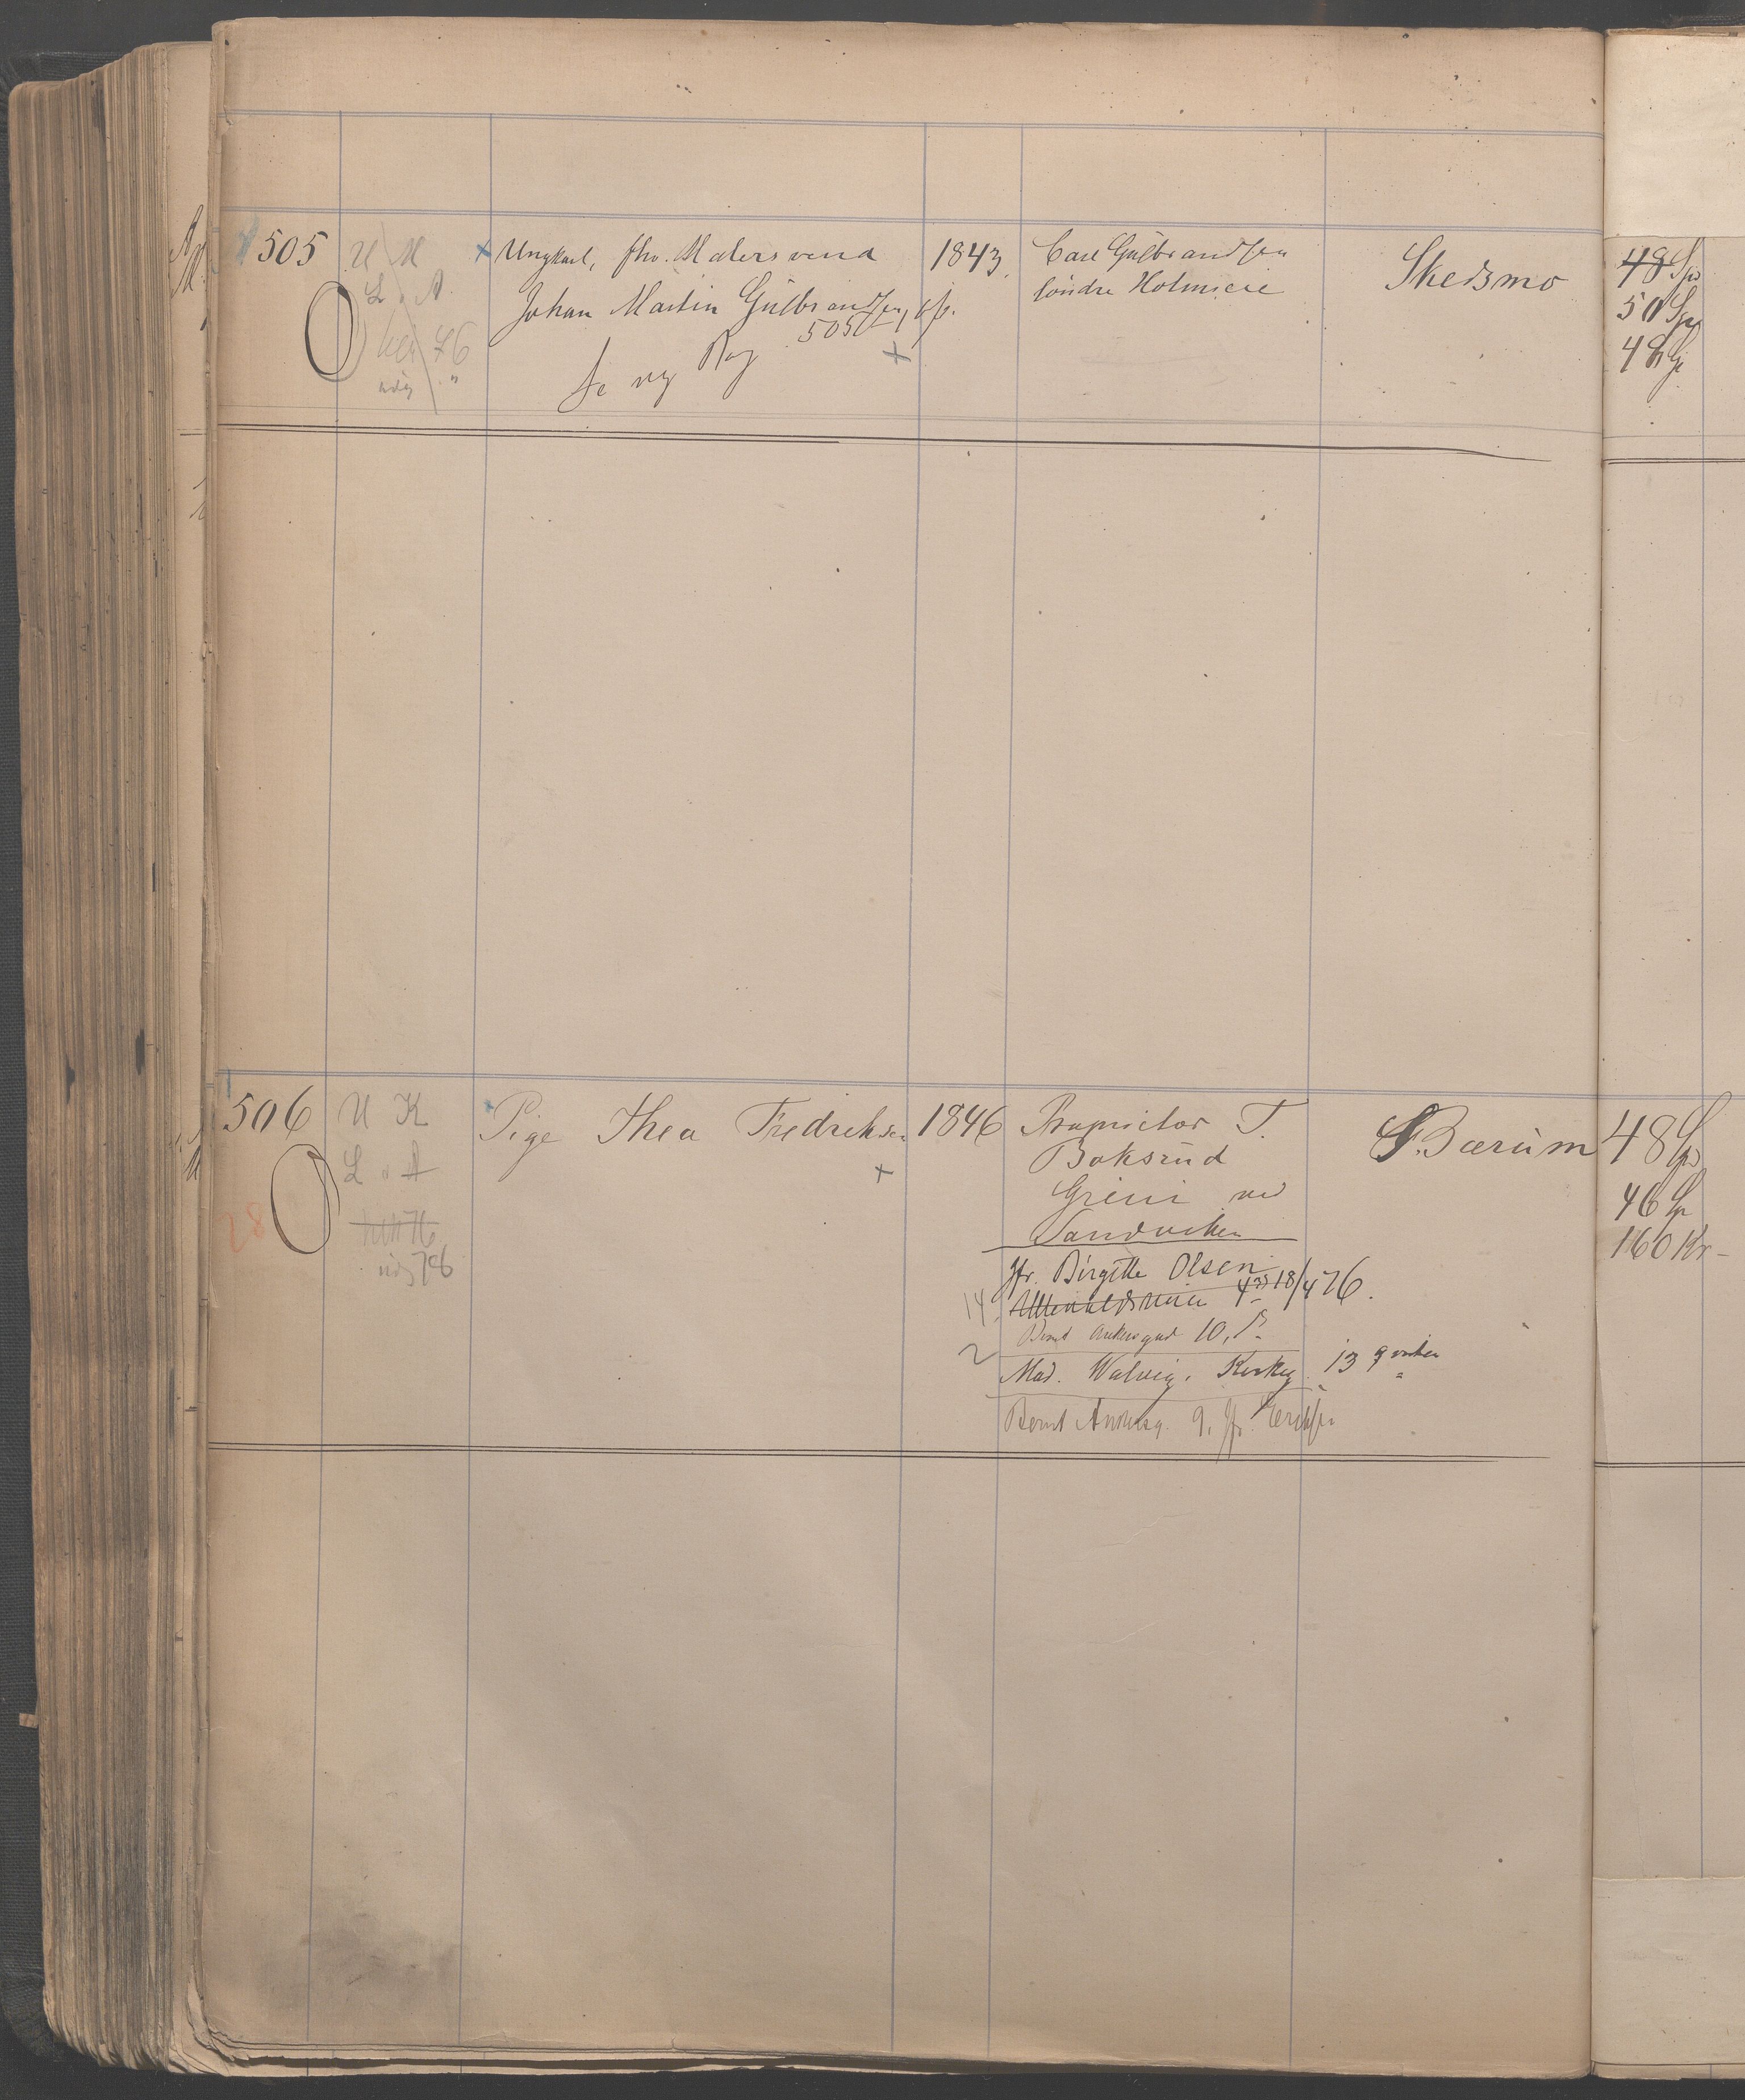 505
U M
L " A
76
Ungkarl, fhv. Malersvend
Johan Martin Gulbrandsen,
505
Se ny Reg
1843.
Carl Gulbrandsen
söndre Holmseie
Skedsmo
48 Spd
50 Spd
48
506
U K
L " A
28
76
Pige Thea Fredriksen
1846
Proprietær T.
Boksrud
Grini ved
Sandviken
Jfr. Birgitte Olsen
18/4 76.
14.
Bernt Ankersgad 10,
2
Mad. Walvig, Kirkeg. 13
Bernt Ankersg. 9. Jfr. Eriksen
S. Bærum
48 Spd
46 Sp
160 Kr